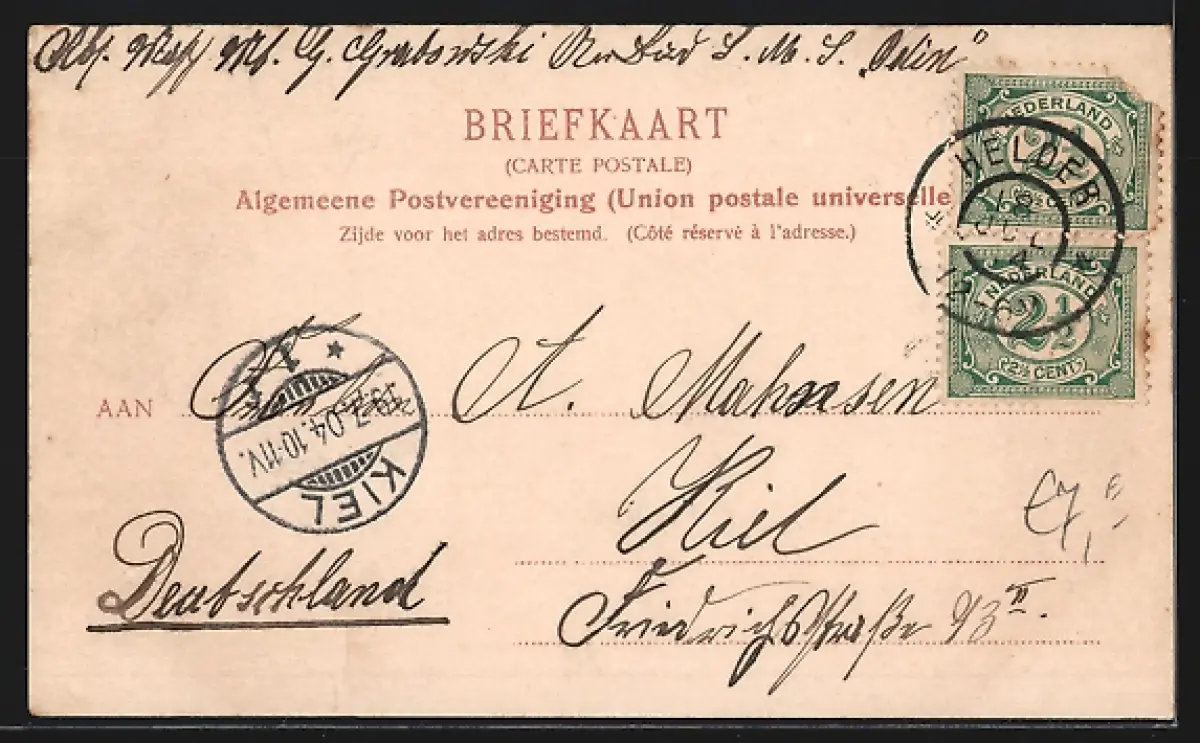 G. Grabowski An Bord S. M. S. „Odin"
BRIEFKAART
(CARTE POSTALE)
Algemeene Postvereeniging (Union postale universelle
Zijde voor het adres bestemd. (Côté réservé à l'adresse.)
NEDERLAND
2½
HELDER
NEDERLAND
2½
2½ CENT
AAN
A. Mahnsen
Kiel
Deutschland
Friedrichstraße 93 II.
1
7.04.10-11V.
KIEL